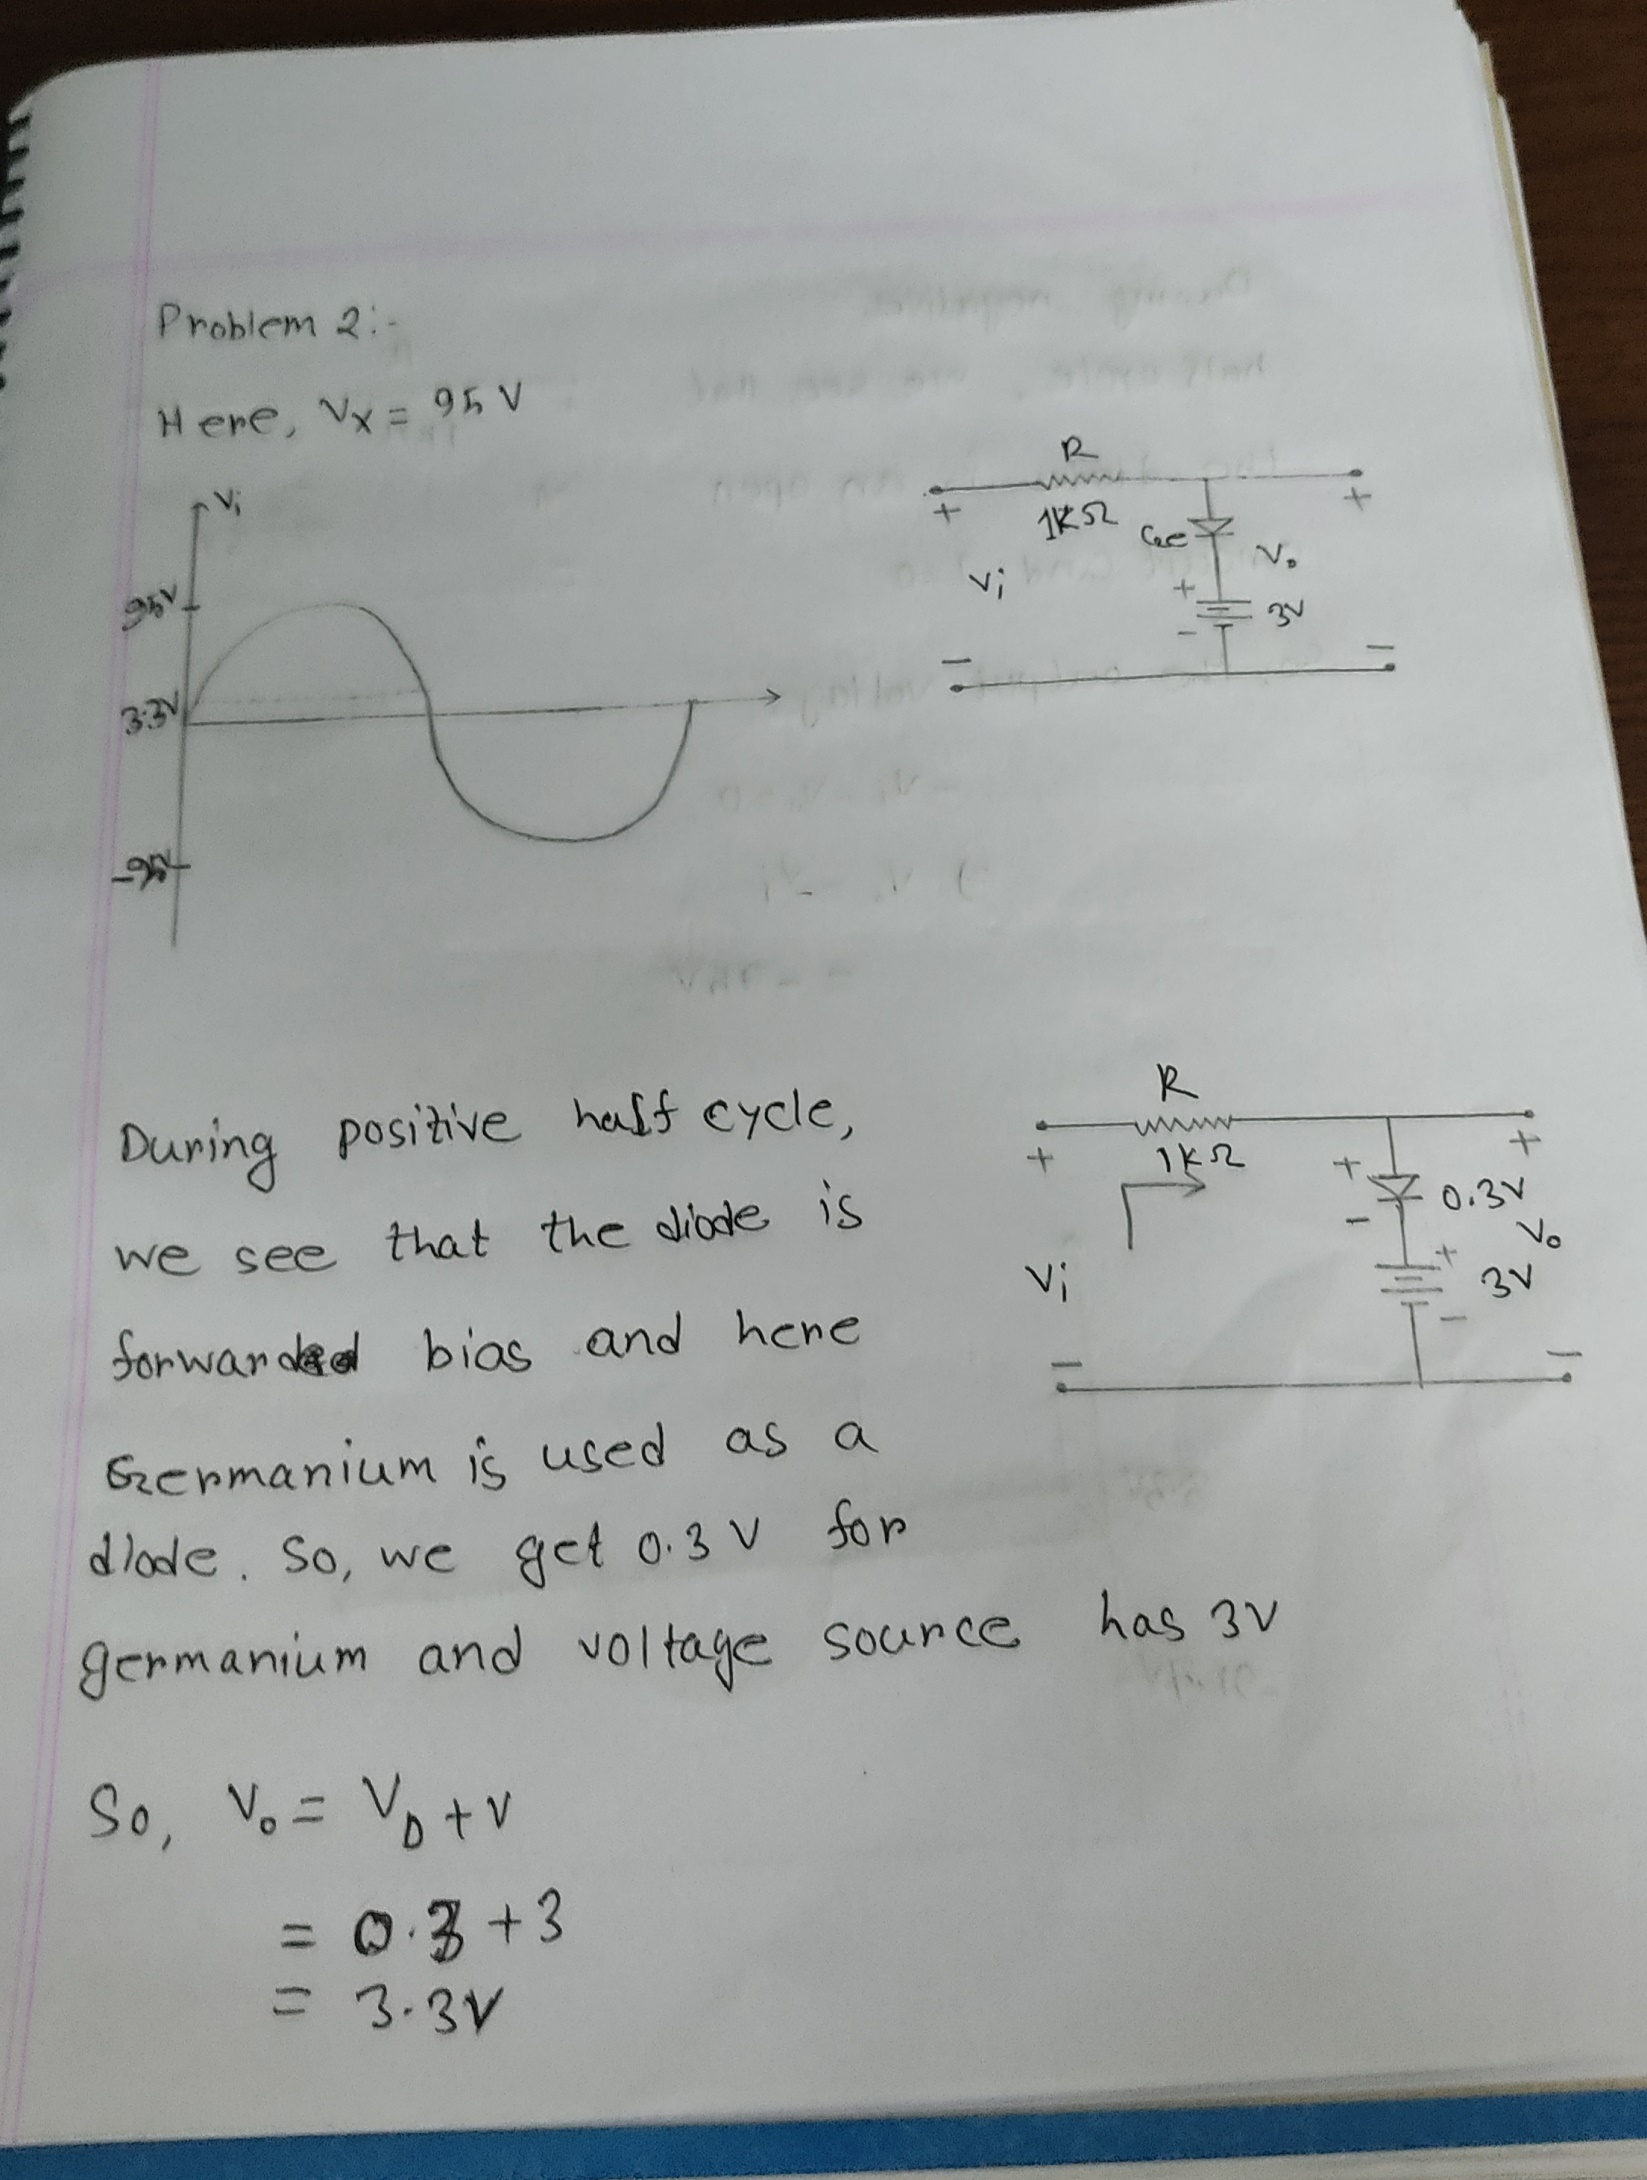 Problem 2:-
Here, Vx = 95 V
Vi
95V
3.3V
-95V
R
1KΩ
+
+
Ge
Vi
Vo
+
3V
-
-
-
During positive half cycle,
we see that the diode is
forwarded bias and here
Germanium is used as a
diode. So, we get 0.3 V for
germanium and voltage source has 3V
R
1KΩ
+
+
+
0.3V
-
Vo
Vi
+
3V
-
-
-
So, Vo = VD + V
= 0.3 + 3
= 3.3V